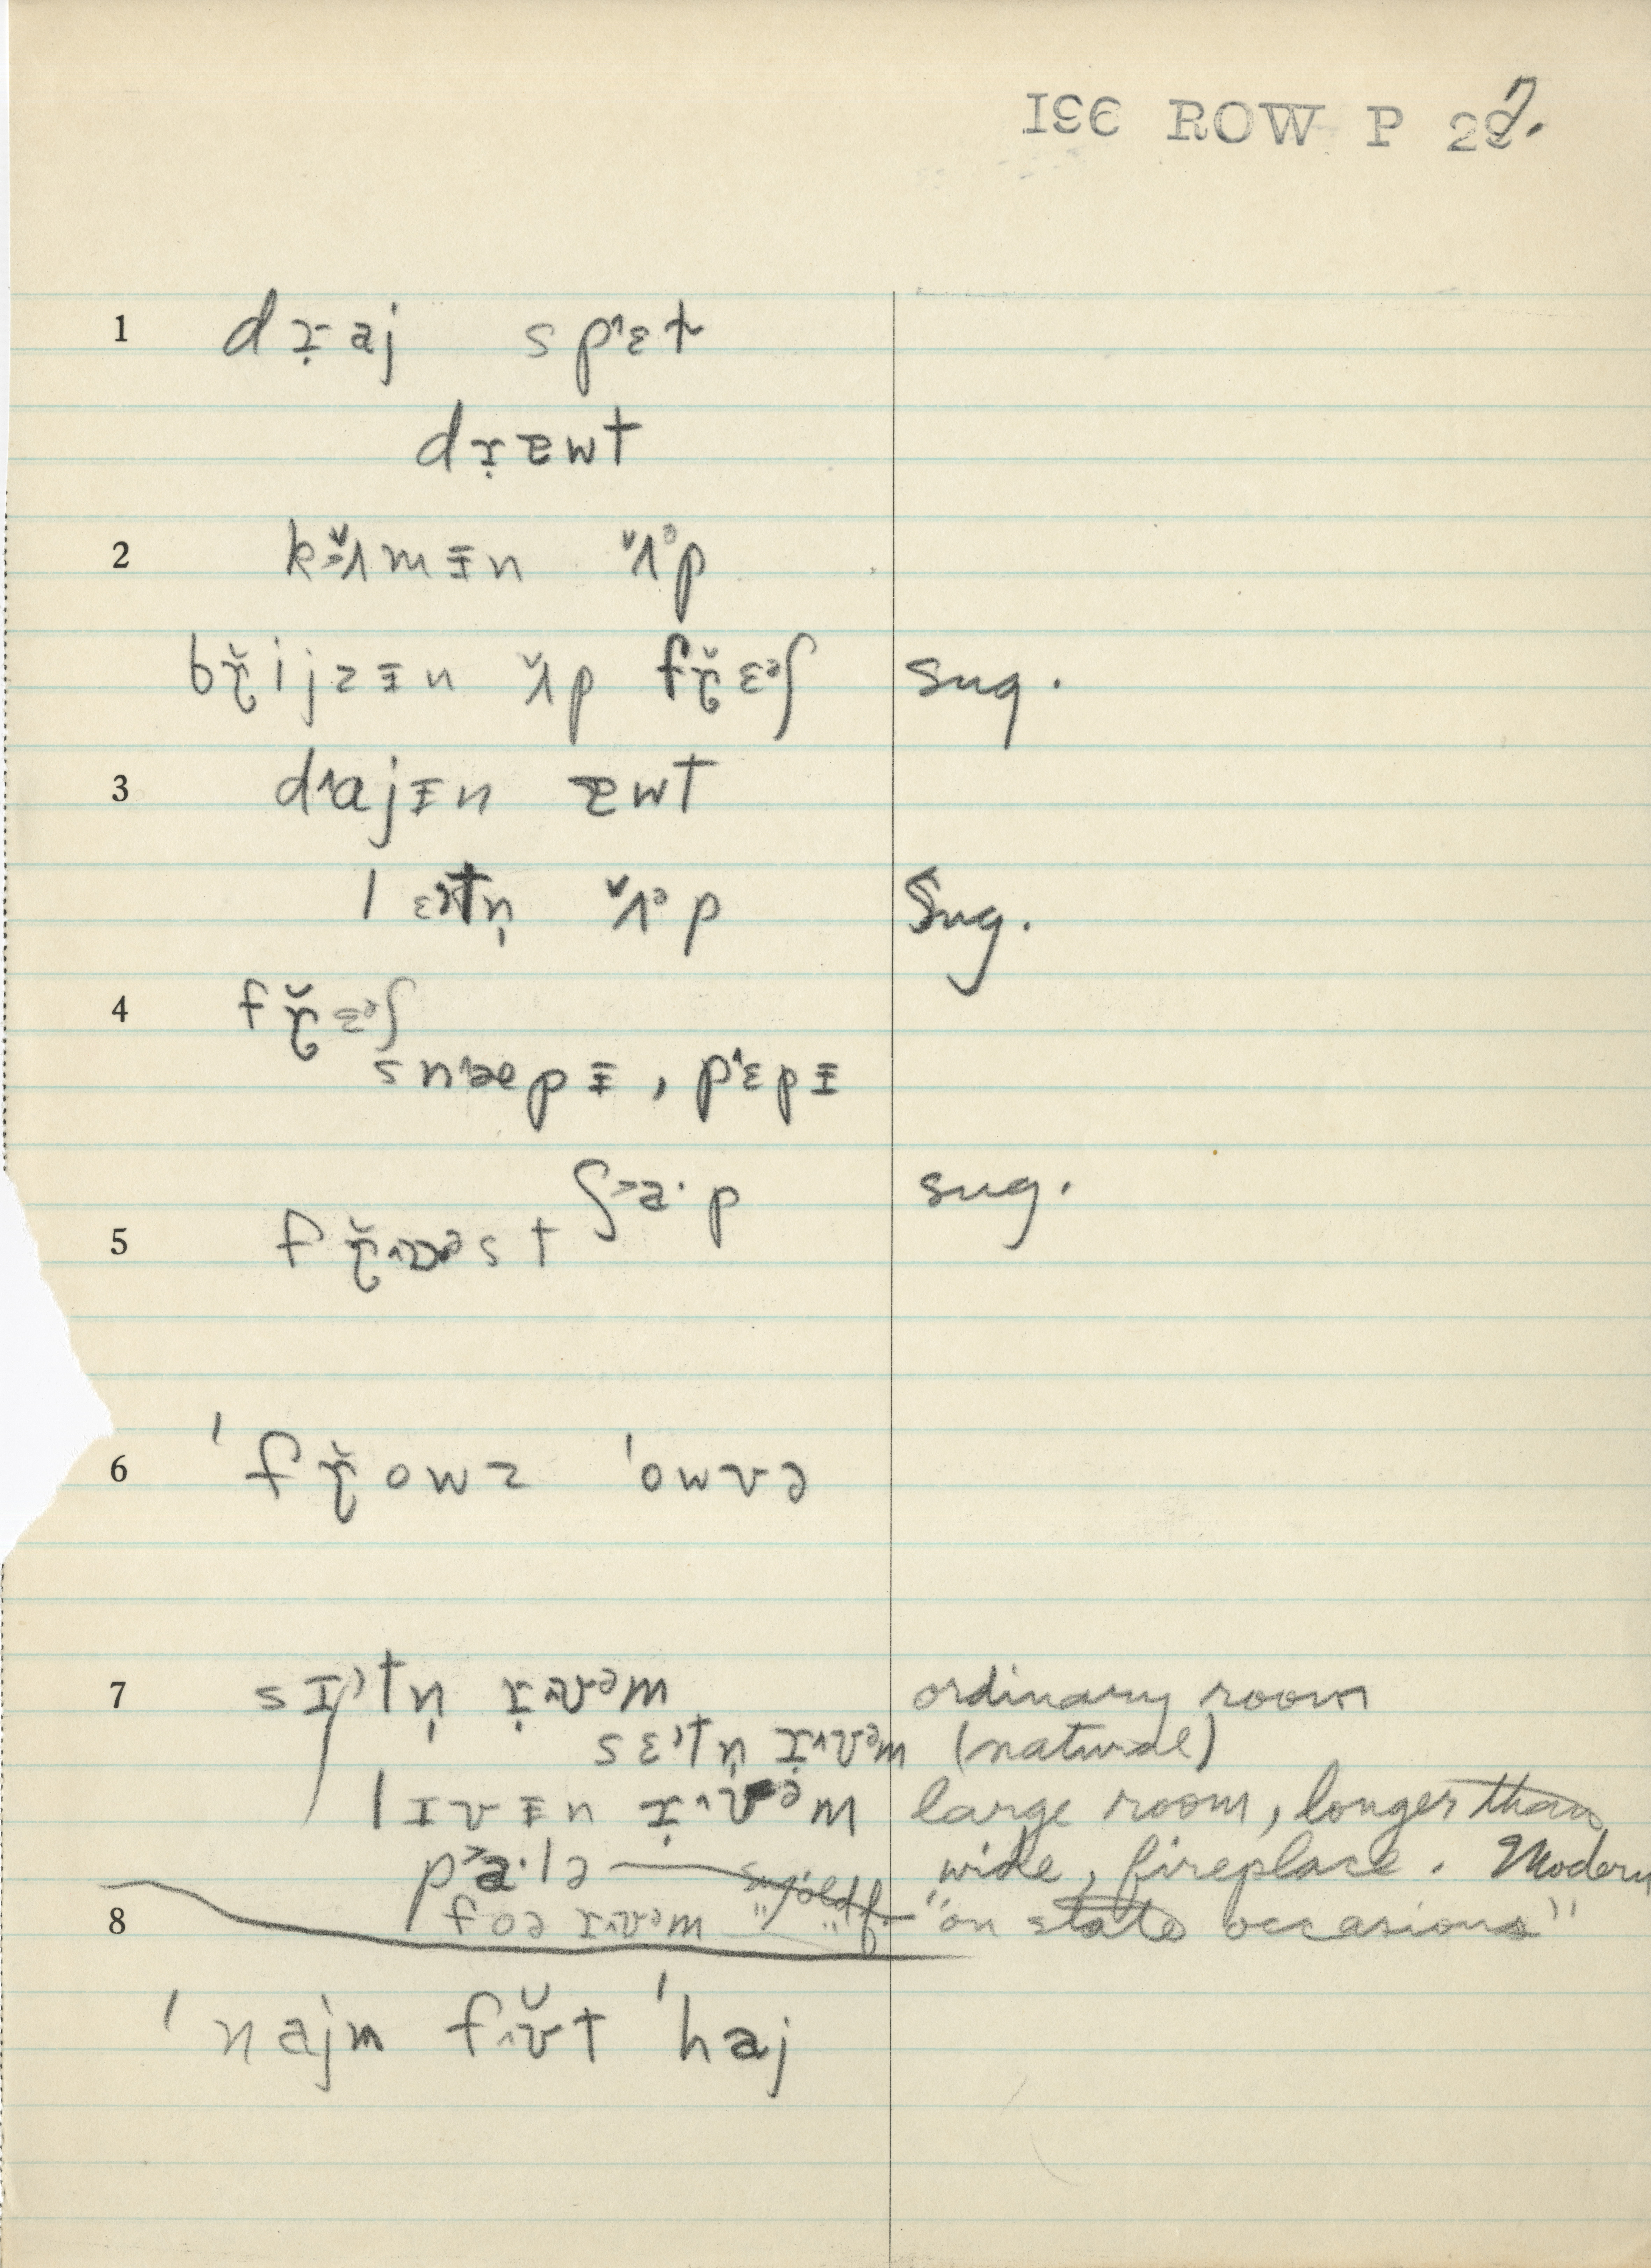 ISC ROW P 297.
1 dɪ̣aj spˈɛt
dɪ̣ɐwt
2 kʌ̌mɪ̵n ʌ̌ᵊp
bɽ̌ijzɪ̵n ʌ̌p fɽ̌ɛᵊʃ sug.
3 drajɪ̵n ɐwt
lɛtn̩ ʌ̌ᵊp Sug.
4 fɽ̌ɛᵊʃ
snæpɪ̵, pˈɛpɪ̵
ʃaˑp sug.
5 fɽ̌ɒᵊst
6 ˈfɽ̌owz ˈowvə
7 sɪtn̩ ɪ̣ʊᵊm ordinary room
sɛtn̩ ɪ̣ʊᵊm (natural)
lɪvɪ̵n ɪ̣ʊᵊm large room, longer than
paˑlə wide, fireplace. Modern
8 foə ɪʊᵊm "on state occasions"
ˈnajn fʊ̌t ˈhaj